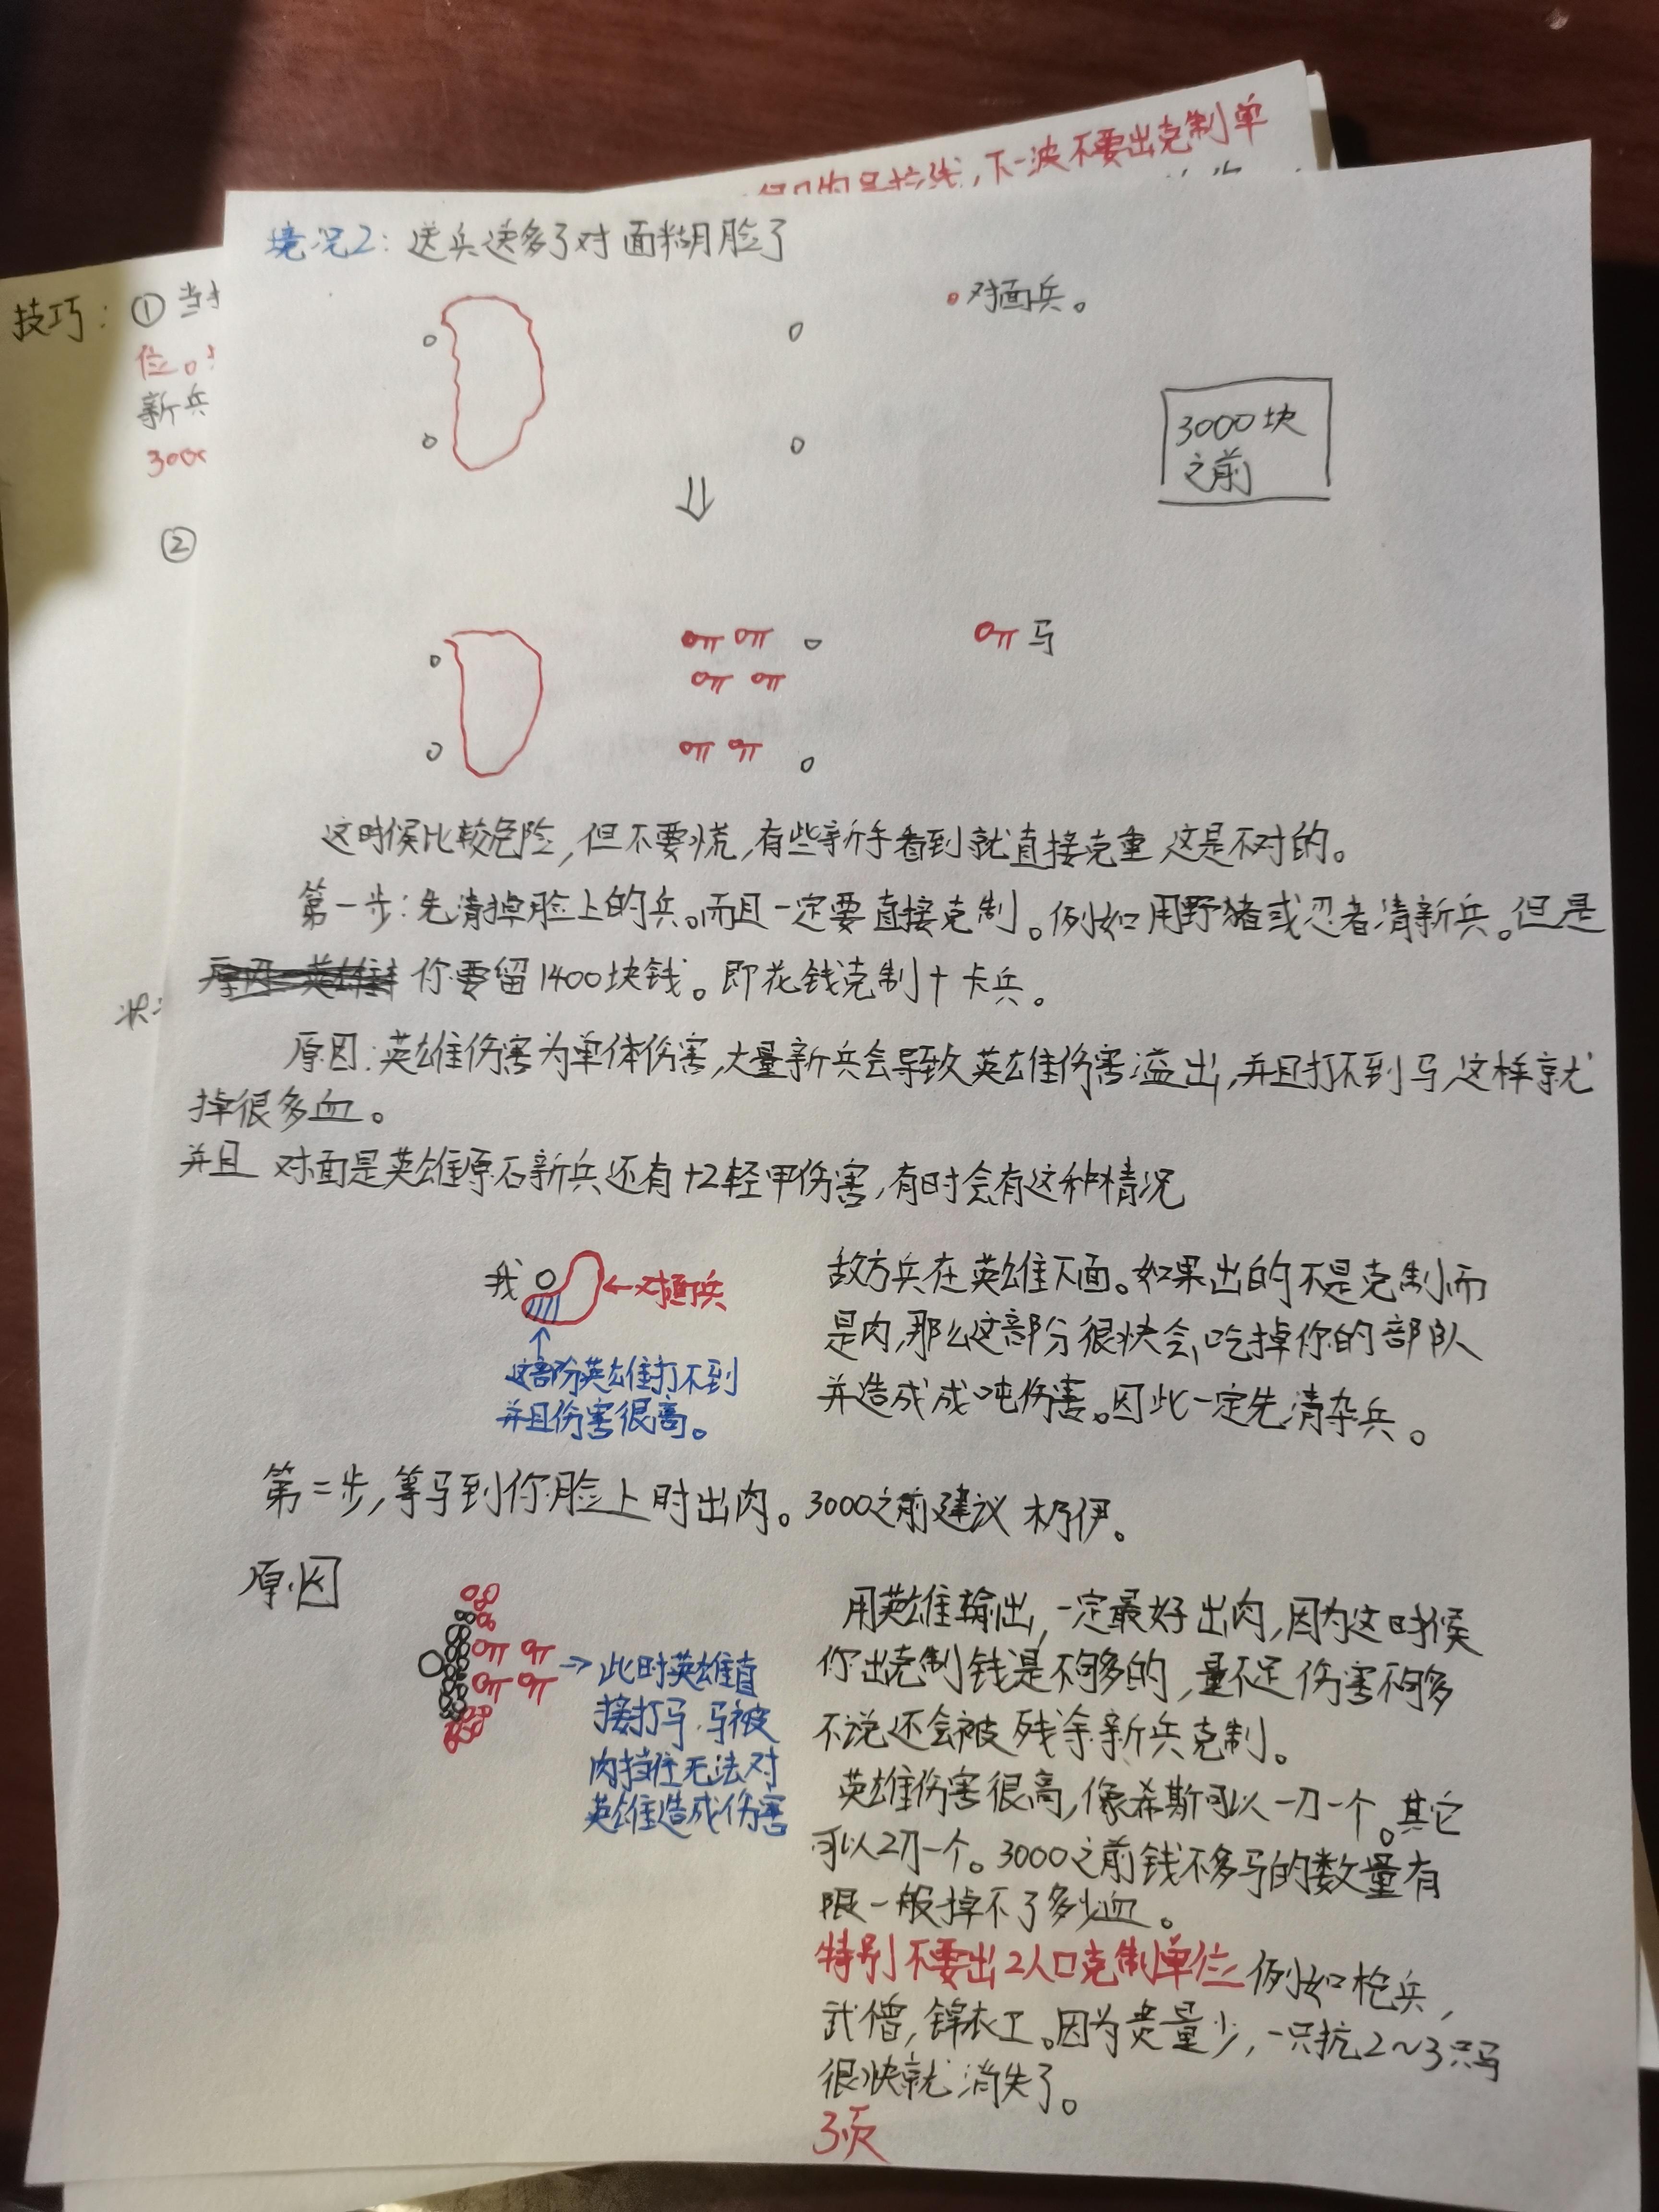 下一波不要出克制单
技巧：① 当
位。
新兵
300
②
境况2：送兵送多了对面糊脸了
对面兵。
3000块
之前
马
这时候比较危险，但不要慌，有些新手看到就直接克重 这是不对的。
第一步：先清掉脸上的兵。而且一定要直接克制。例如用野猪或忍者清新兵。但是
你要留1400块钱。即花钱克制+卡兵。
原因：英雄伤害为单体伤害，大量新兵会导致英雄伤害溢出，并且打不到马，这样就
掉很多血。
并且 对面是英雄原石新兵还有+2轻甲伤害，有时会有这种情况
我
←对面兵
这部份英雄打不到
并且伤害很高。
敌方兵在英雄下面。如果出的不是克制而
是肉，那么这部分很快会吃掉你的部队
并造成成吨伤害。因此一定先清杂兵。
第二步，等马到你脸上时出肉。3000之前建议木乃伊。
原因
→此时英雄直
接打马，马被
肉挡住无法对
英雄造成伤害
用英雄输出，一定最好出肉，因为这时候
你出克制钱是不够多的，量不足伤害不够多
不说还会被残余新兵克制。
英雄伤害很高，像希斯可以一刀一个。其它
可以2刀一个。3000之前钱不多马的数量有
限一般掉不了多少血。
特别不要出2人口克制单位 例如枪兵，
武僧，锦衣卫。因为贵量少，一只抗2~3只马
很快就消失了。
3页